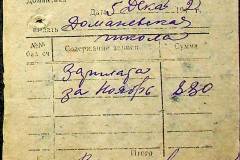 Дата 5 Дека 192
Выдать Доманевская
школа
№№ Содержание записи Сумма
бал сч
Зарплата
за Ноябрь 880
Итого